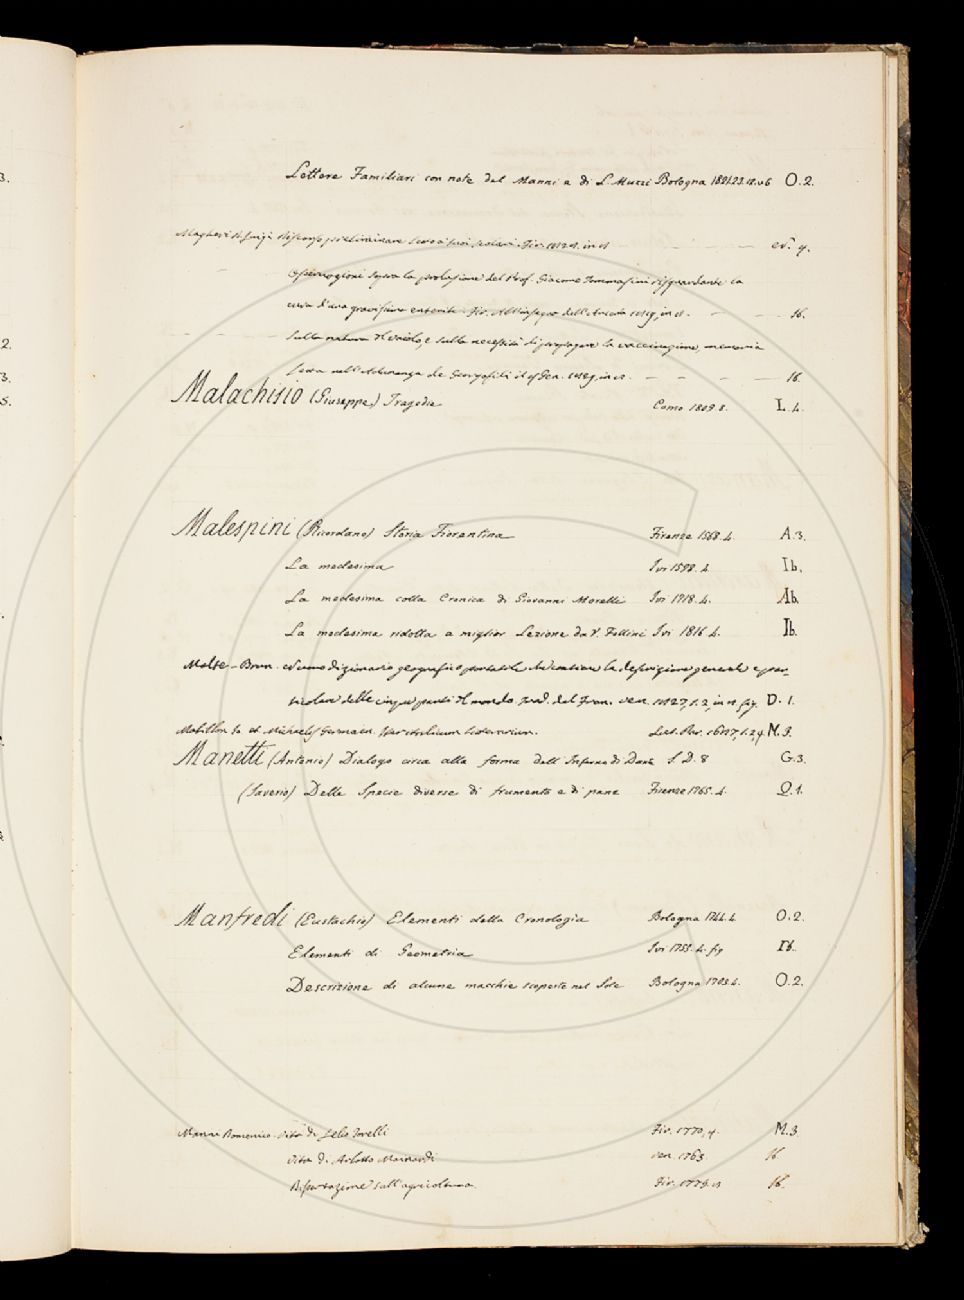 Lettere Familiari con note del Manni e di L. Muzzi Bologna 1821.23.12. v 6 O. 2.
Magheri Luigi Discorso preliminare ai suoi scolari. Fir. in 8
Osservazioni sopra la prolusione del Prof. Giacomo Tommasini risguardante la
cura d'una gravissima enterite. Fir. All'insegna dell'Ancora 1819, in 8. — — Ib.
Sulla natura del vaiolo, e sulla necessità di propagare la vaccinazione, memoria
letta nell'Adunanza de Georgofili il Gen. 1829, in 8. — — — — Ib.
Malachisio (Giuseppe) Tragedie Como 1809. 8. L. 4.
Malespini (Ricordano) Storia Fiorentina Firenze 1568. 4. A. 3.
La medesima Ivi 1598. 4. Ib.
La medesima colla Cronica di Giovanni Morelli Ivi 1718. 4. Ib.
La medesima ridotta a miglior Lezione da V. Follini Ivi 1816 4. Ib.
Malte-Brun. Nuovo dizionario geografico portatile che contiene la descrizione generale e par-
ticolare delle cinque parti del mondo. trad. dal Fran. Ven. 1827, t. 2, in 8. fig. D. 1.
Mabillon Jo et Michaelis Germain. Iter Italicum Litterarium. Lut. Par. 1687, t. 2, 4. N. 3.
Manetti (Antonio) Dialogo circa alla forma dell Inferno di Dante S. D. 8 G. 3.
(Saverio) Delle Specie diverse di frumento e di pane Firenze 1765. 4. Q. 1.
Manfredi (Eustachio) Elementi della Cronologia Bologna 1744. 4. O. 2.
Elementi di Geometria Ivi 1755. 4. fig Ib.
Descrizione di alcune macchie scoperte nel Sole Bologna 1703. 4. O. 2.
Manni Domenico. Vita di Lelio Torelli Fir. 1770, 4. M. 3.
Vita di Arlotto Mainardi Ven. 1763. Ib.
Dissertazione sull'agricoltura. Fir. 1773. 8 Ib.